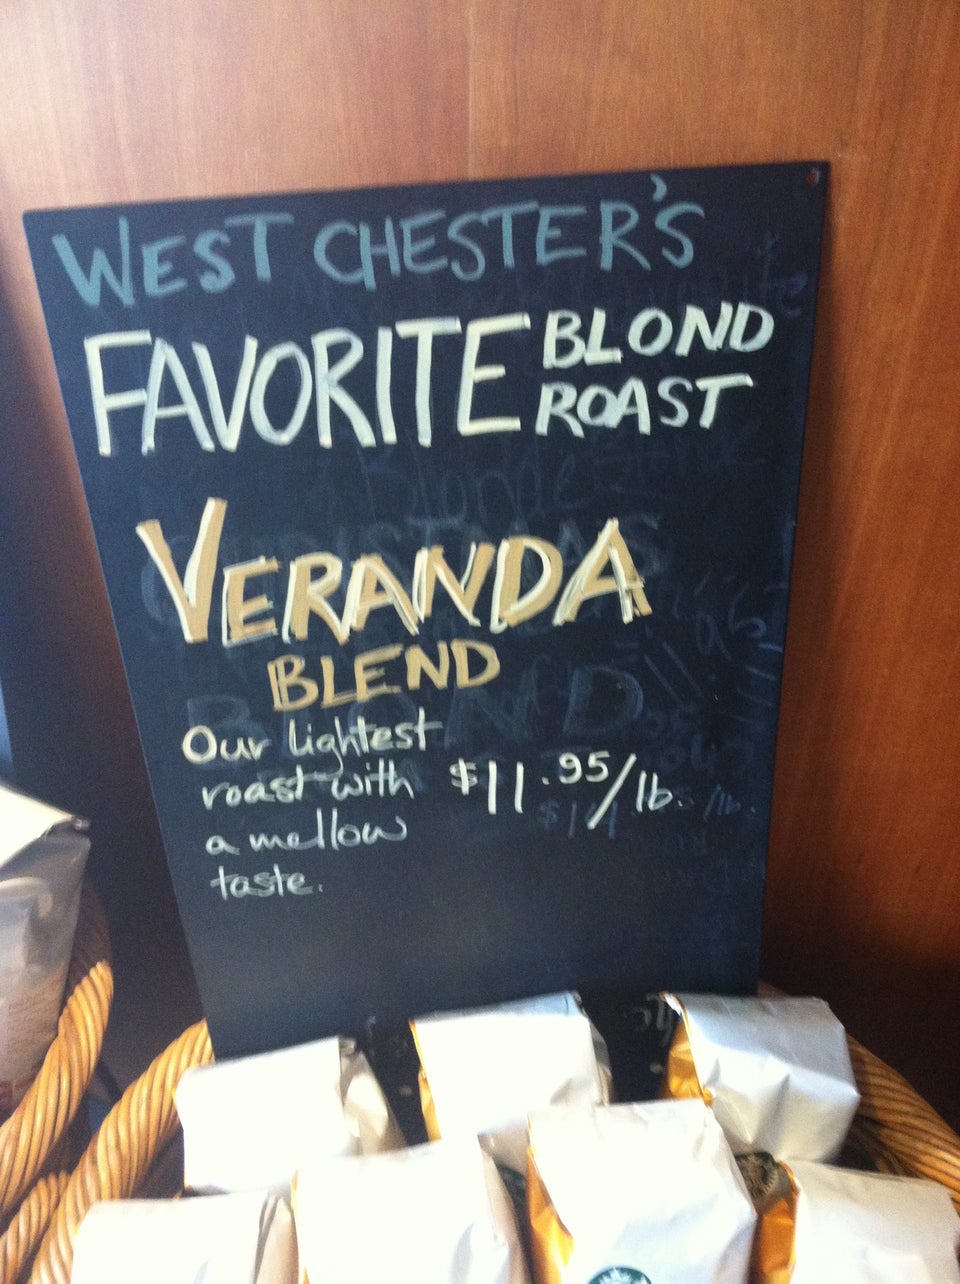 WEST CHESTER'S
FAVORITE BLOND
ROAST
VERANDA
BLEND
Our lightest
roast with
a mellow
taste.
$11.95/lb.